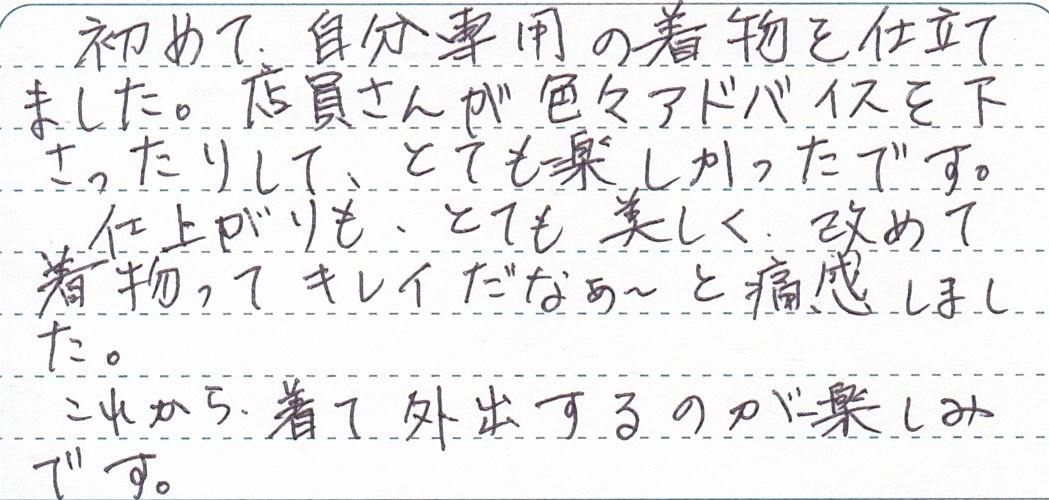 初めて、自分専用の着物を仕立て
ました。店員さんが色々アドバイスを下
さったりして、とても楽しかったです。
仕上がりも、とても美しく、改めて
着物ってキレイだなぁ〜と痛感しまし
た。
これから、着て外出するのが楽しみ
です。